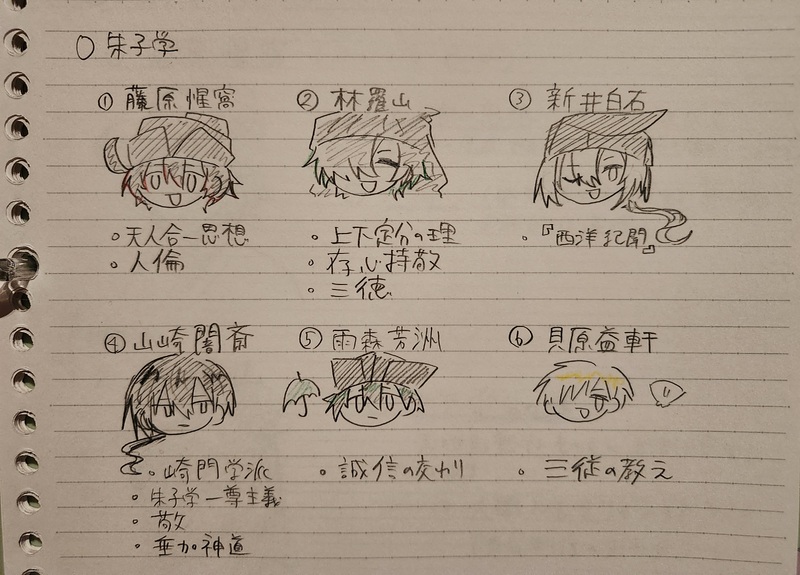 ○ 朱子学
① 藤原惺窩
② 林羅山
③ 新井白石
・天人合一思想
・人倫
・上下定分の理
・存心持敬
・三徳
・『西洋紀聞』
④ 山崎闇斎
⑤ 雨森芳洲
⑥ 貝原益軒
・崎門学派
・朱子学一尊主義
・敬
・垂加神道
・誠信の交わり
・三従の教え